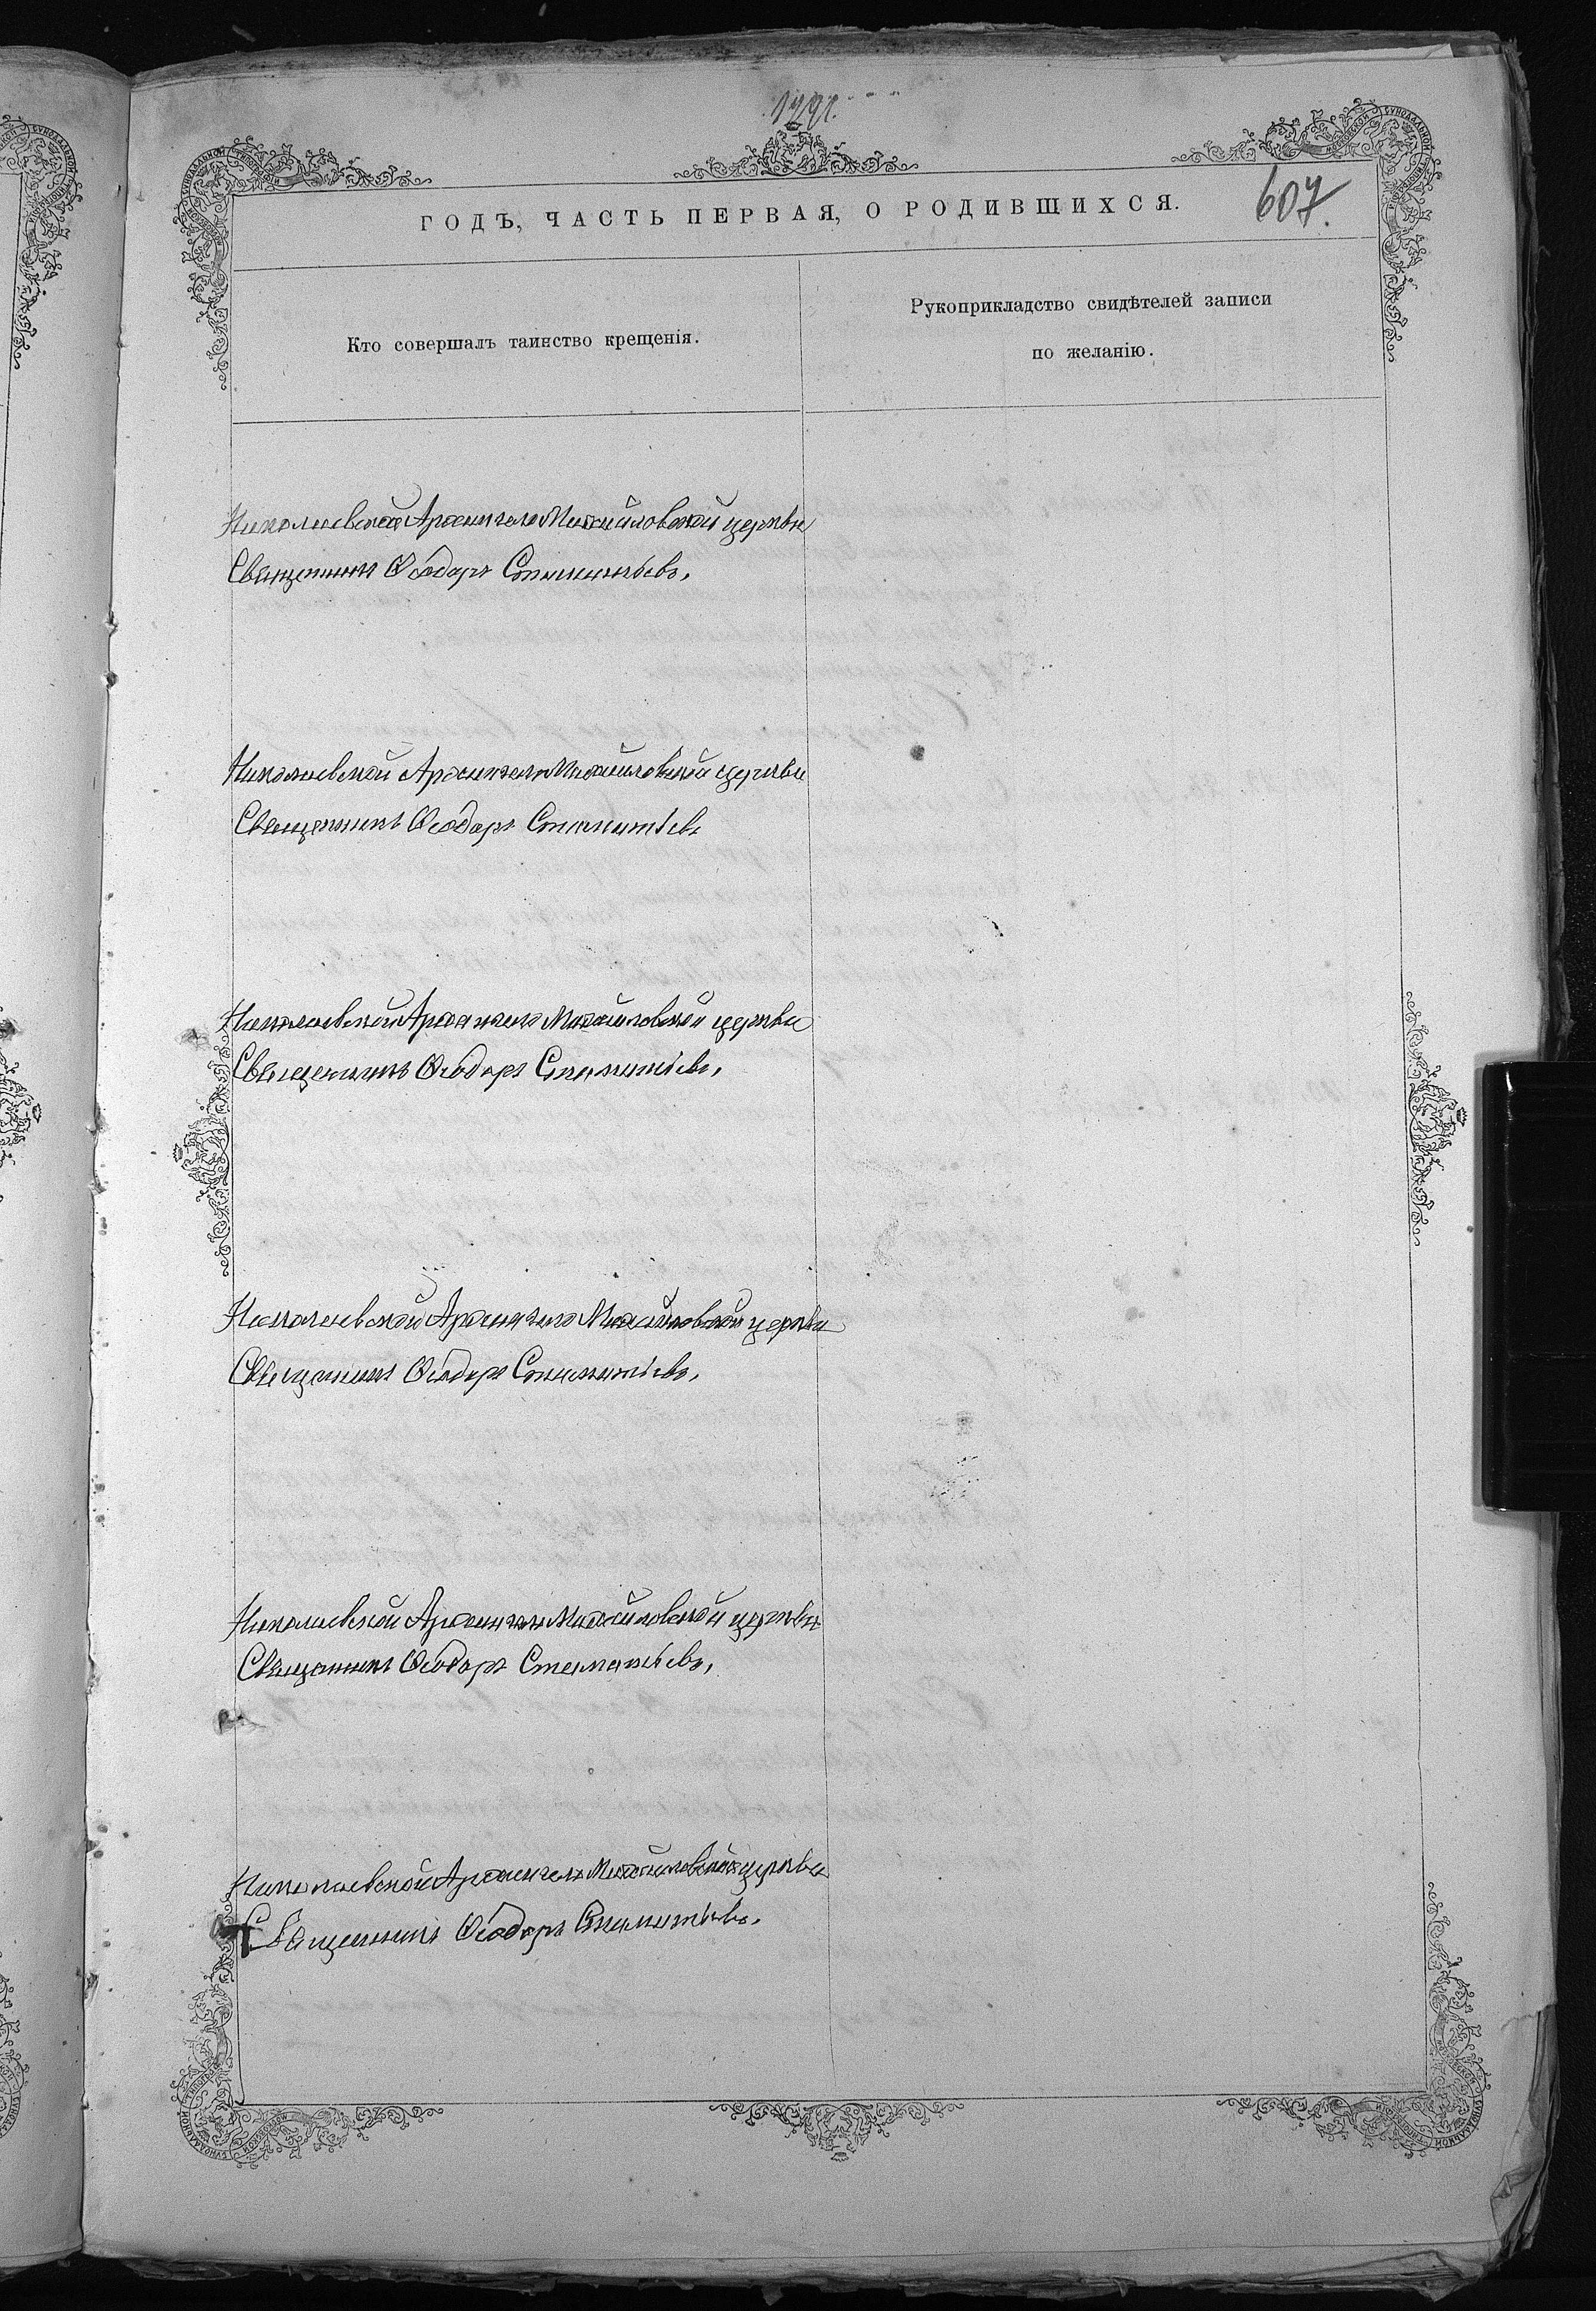 1291.
607.
ГОДЪ, ЧАСТЬ ПЕРВАЯ, О РОДИВШИХСЯ.
Кто совершалъ таинство крещенія.
Рукоприкладство свидѣтелей записи
по желанію.
Николаевской Архангело Михайловской церкви
Священникъ Ѳеодоръ Стаматьевъ,
Николаевской Архангело Михайловской церкви
Священникъ Ѳеодоръ Стаматьевъ
Николаевской Архангело Михайловской церкви
Священникъ Ѳеодоръ Стаматьевъ,
Николаевской Архангело Михайловской церкви
Священникъ Ѳеодоръ Стаматьевъ,
Николаевской Архангело Михайловской церкви
Священникъ Ѳеодоръ Стаматьевъ,
Николаевской Архангело Михайловской церкви
Священникъ Ѳеодоръ Стаматьевъ.